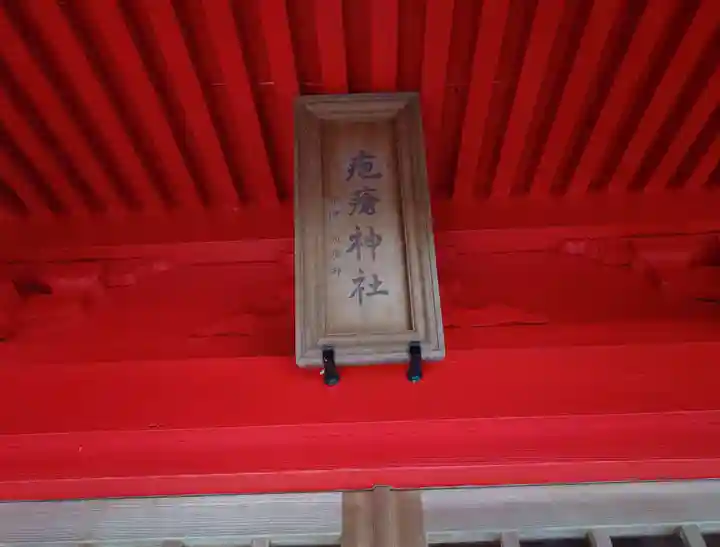 疱瘡神社